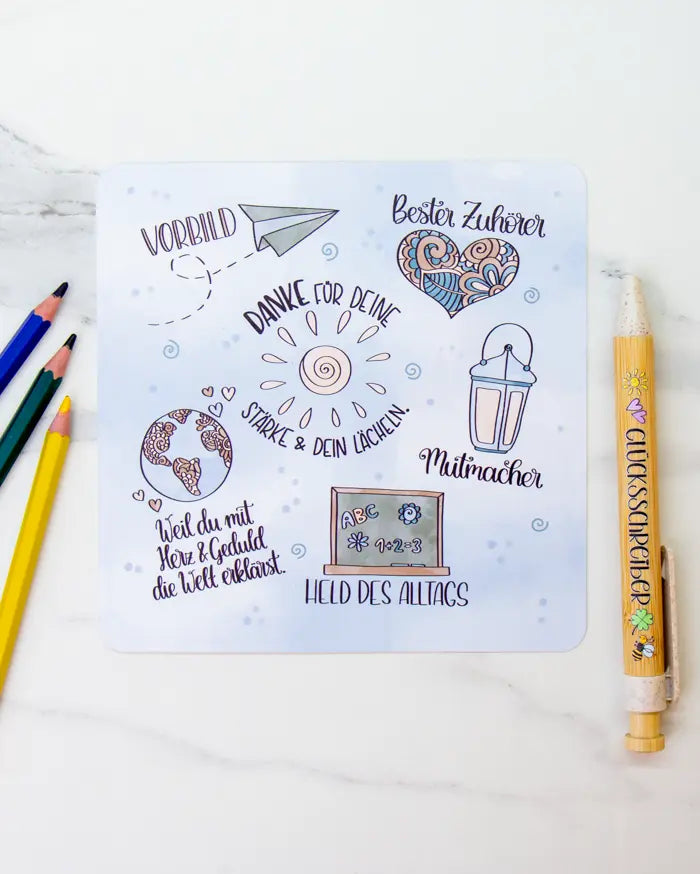 VORBILD
Bester Zuhörer
DANKE FÜR DEINE
STÄRKE & DEIN LÄCHELN.
Mutmacher
Weil du mit
Herz & Geduld
die Welt erklärst.
ABC
1+2=3
HELD DES ALLTAGS
GLÜCKSSCHREIBER